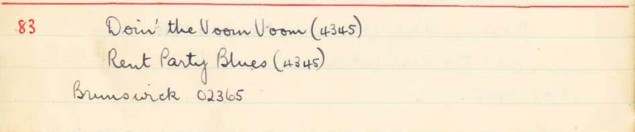 83 Doin' the Voom Voom (4345)
Rent Party Blues (4345)
Brunswick 02365